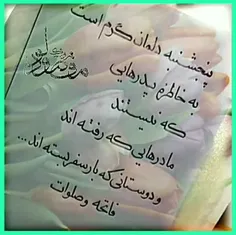 پنجشنبه دلمان گرم است
به خاطره پدرهایی
که نیستند
مادرهایی که رفته اند
و دوستانی که بار سفر بسته اند...
فاتحه و صلوات